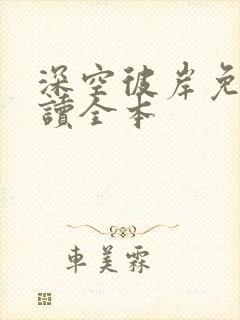 深空彼岸免
讀全本
車美霖